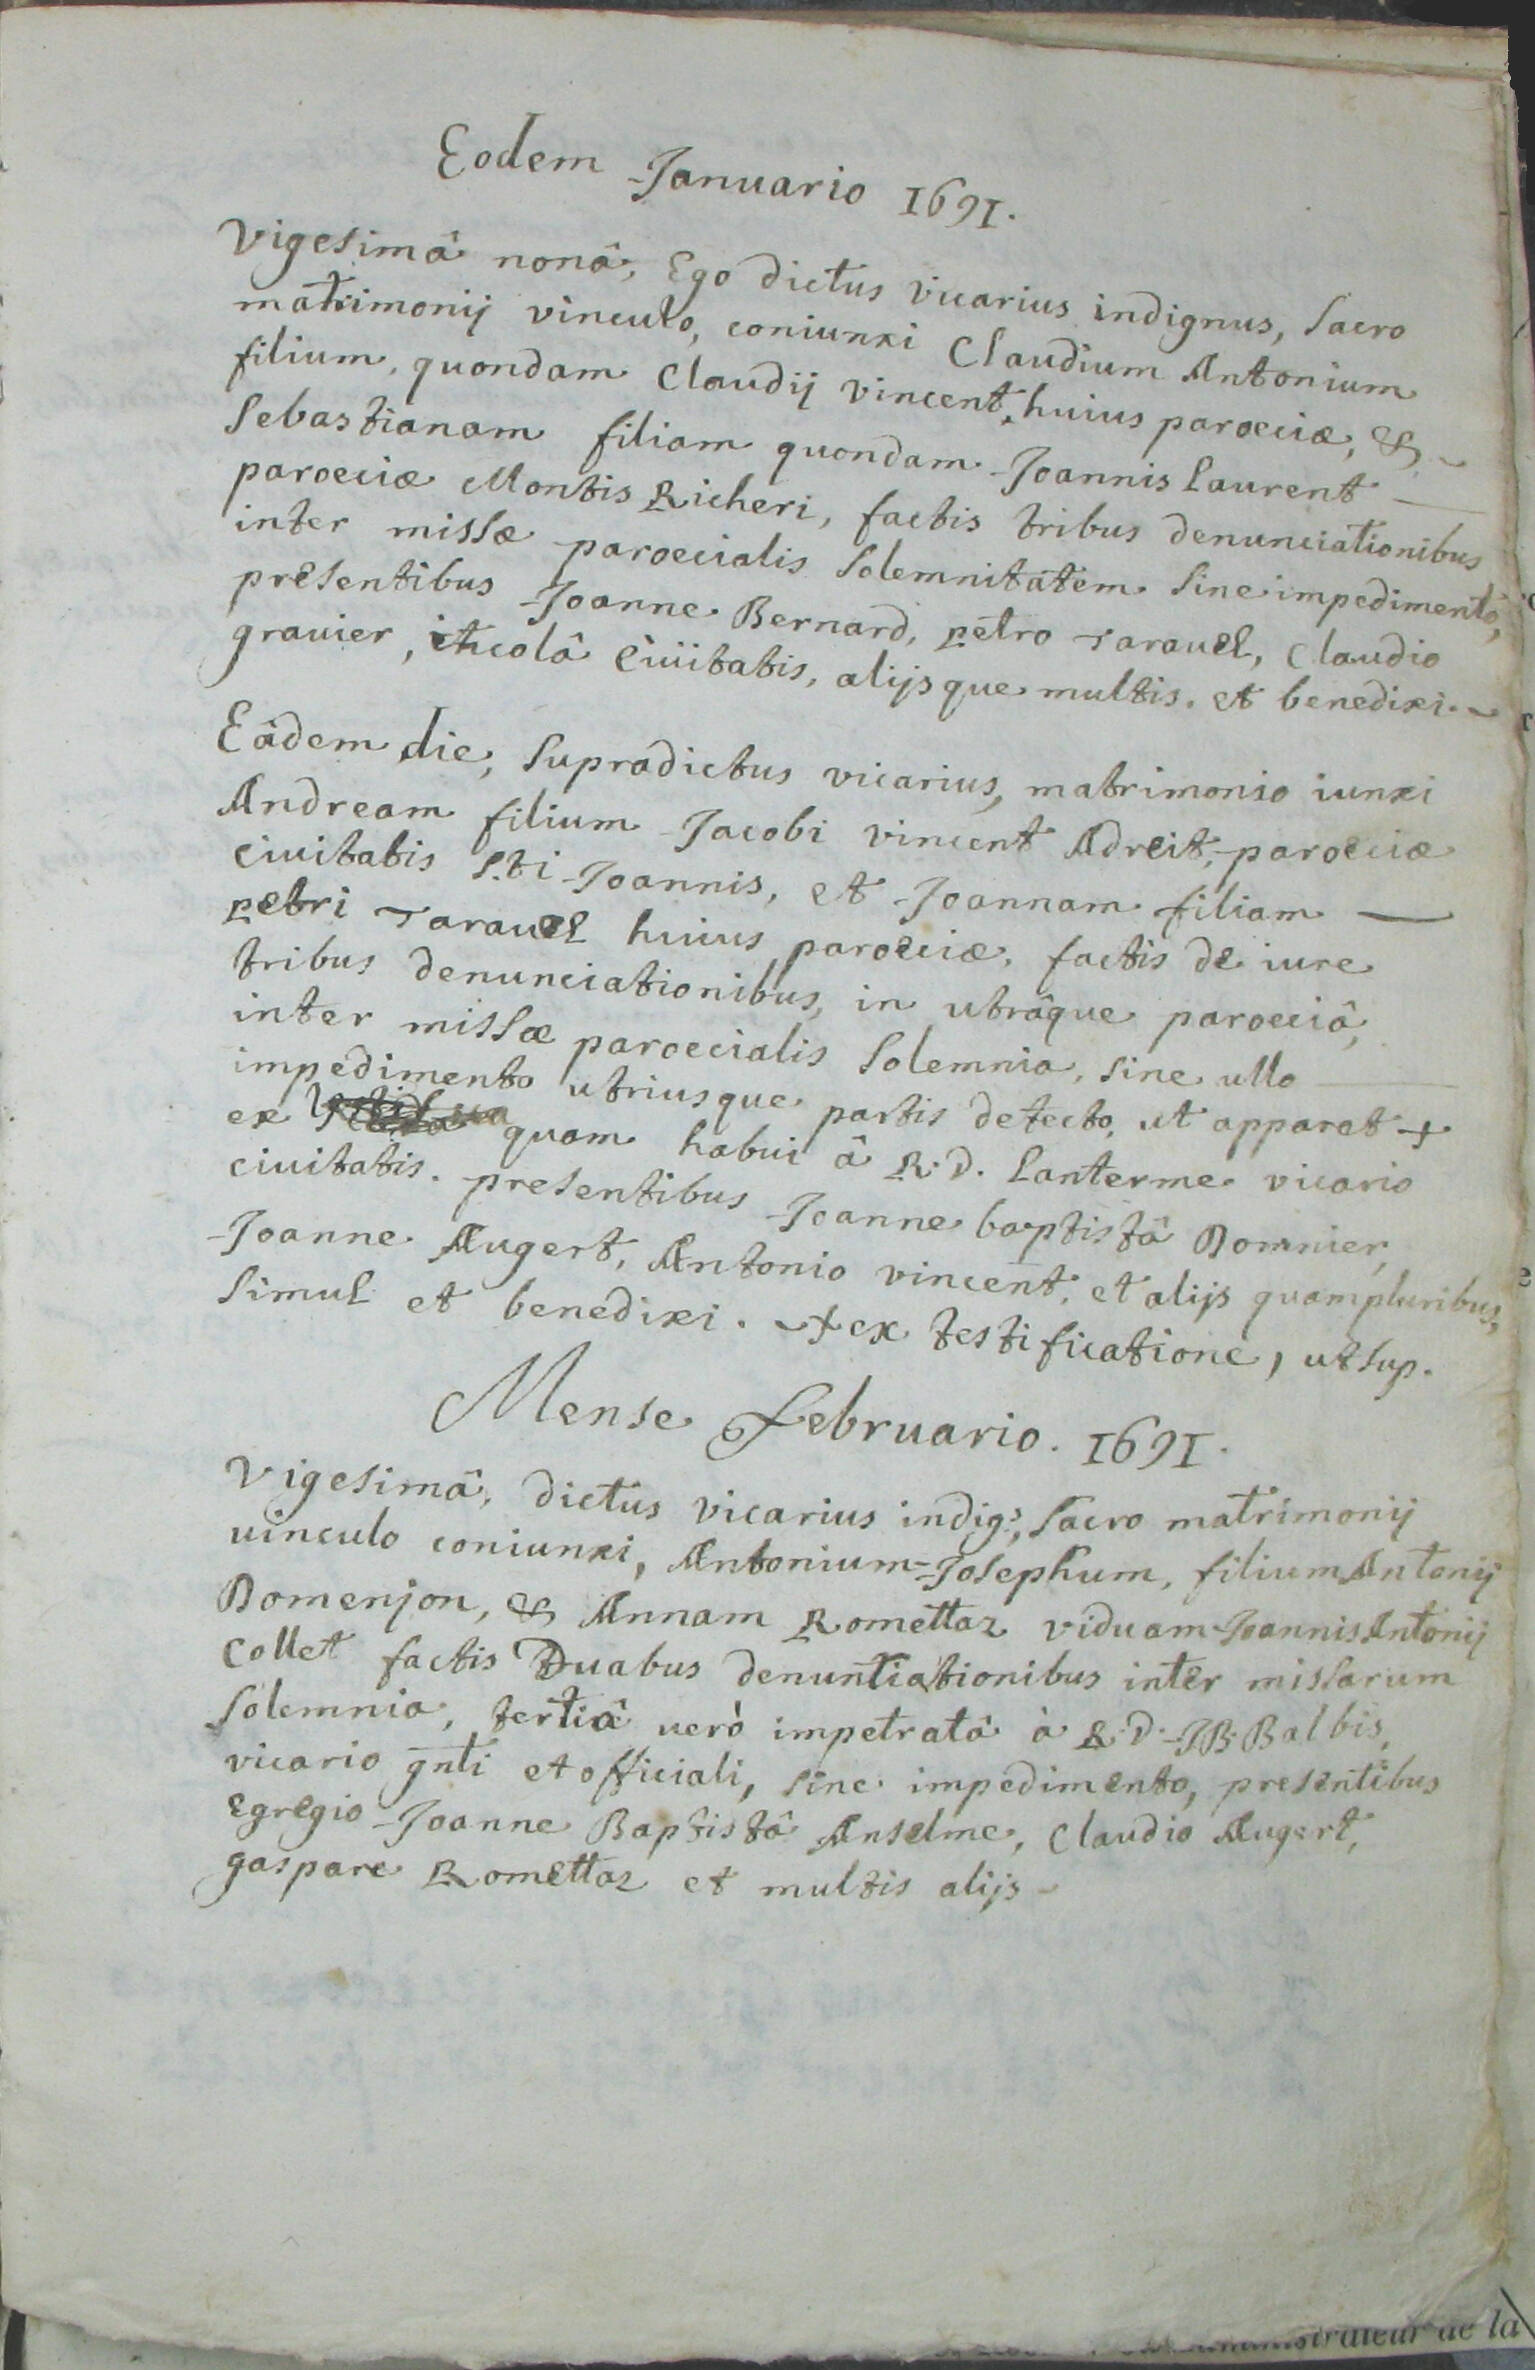 Eodem Januario 1691.
Vigesimâ nonâ, Ego dictus vicarius indignus, sacro
matrimonij vinculo, coniunxi Claudium Antonium
filium, quondam Claudij vincent, huius paroeciæ, &
Sebastianam filiam quondam Joannis Laurent —
paroeciæ Montis Richeri, factis tribus denunciationibus
inter missæ paroecialis solemnitatem sine impedimento,
presentibus Joanne Bernard, petro taravel, Claudio
gravier, incolâ Civitatis, alijsque multis. et benedixi. ~
Eâdem die, supradictus vicarius, matrimonio iunxi
Andream filium Jacobi vincent Adreit, paroeciæ
civitatis Sti Joannis, et Joannam filiam —
petri taravel huius paroeciæ, factis de iure
tribus denunciationibus, in utrâque paroeciâ,
inter missæ paroecialis solemnia, sine ullo —
impedimento utriusque partis detecto, ut apparet +
ex quam habui â R.D. Lanterme vicario
civitatis. presentibus Joanne baptistâ Domnier,
Joanne Augert, Antonio vincent, et alijs quampluribus,
simul et benedixi. ~ + ex testificatione, ut sup.
Mense februario. 1691.
Vigesimâ, dictus vicarius indig:s, sacro matrimonij
vinculo coniunxi, Antonium-Josephum, filium Antonij
Domenjon, & Annam Romettaz viduam Joannis Antonij
Collet factis Duabus denuntiationibus inter missarum
solemnia, tertiâ verò impetratâ à R.D. JB. Balbis,
vicario gnti et officiali, sine impedimento, presentibus
Egregio Joanne Baptistâ Anselme, Claudio Augert,
gaspare Romettaz et multis alijs ~
de la